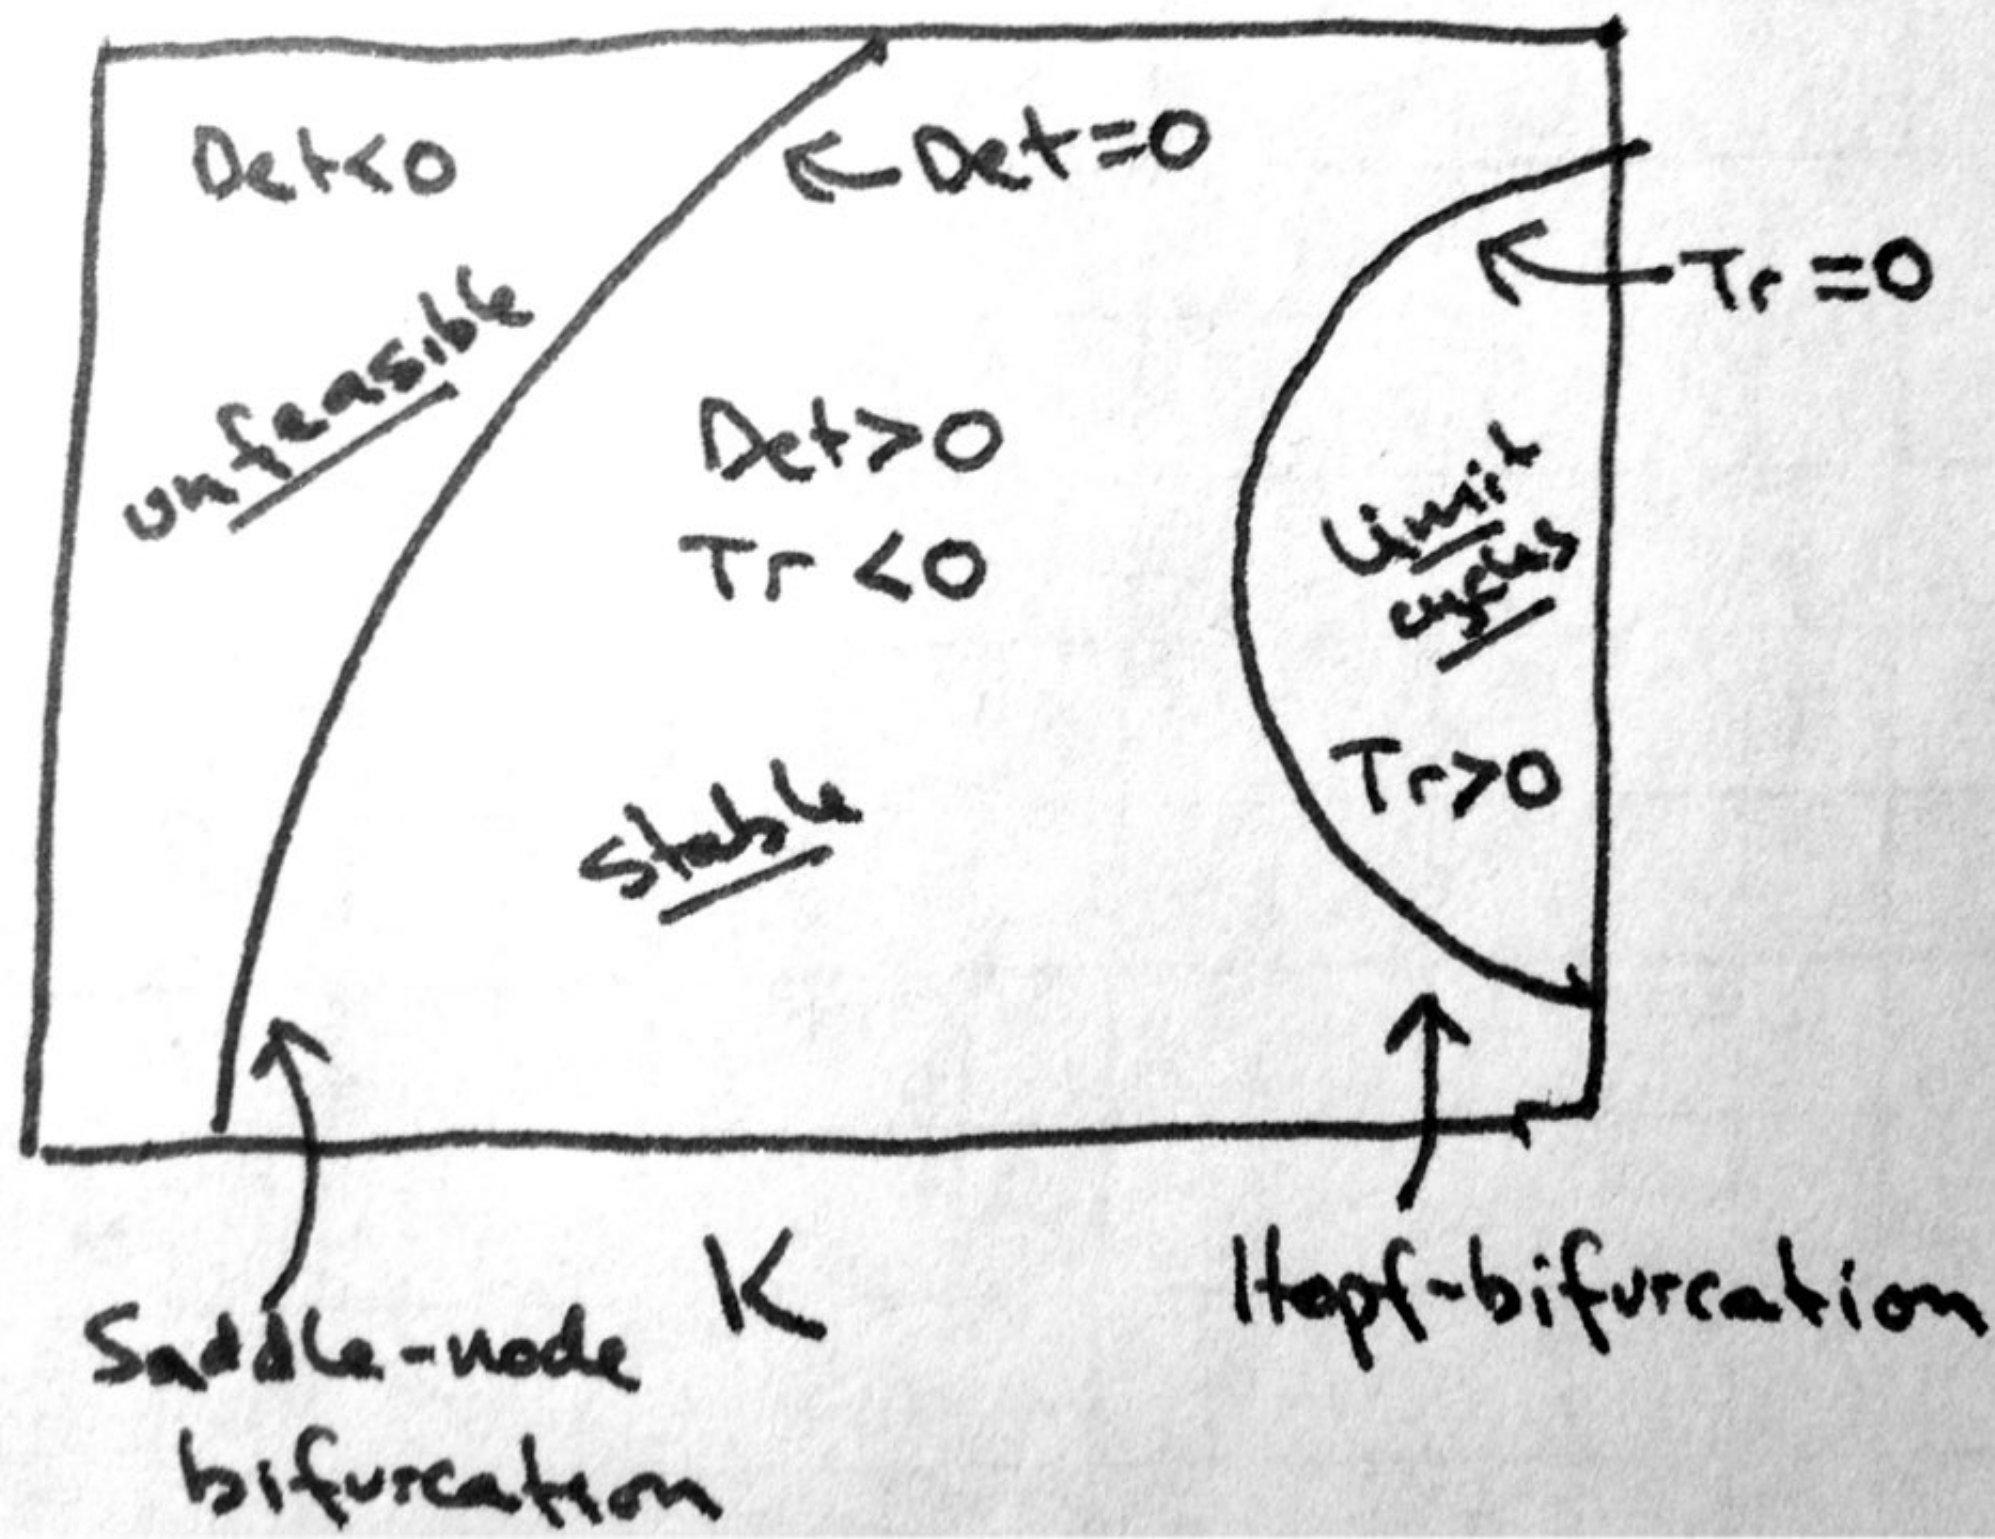 Det<0
Det=0
Tr=0
unfeasible
Det>0
Tr<0
Limit
cycles
Tr>0
Stable
K
Saddle-node
bifurcation
Hopf-bifurcation